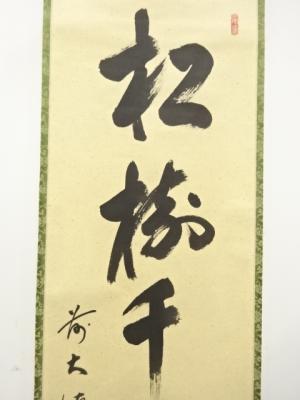 松樹千
前大德